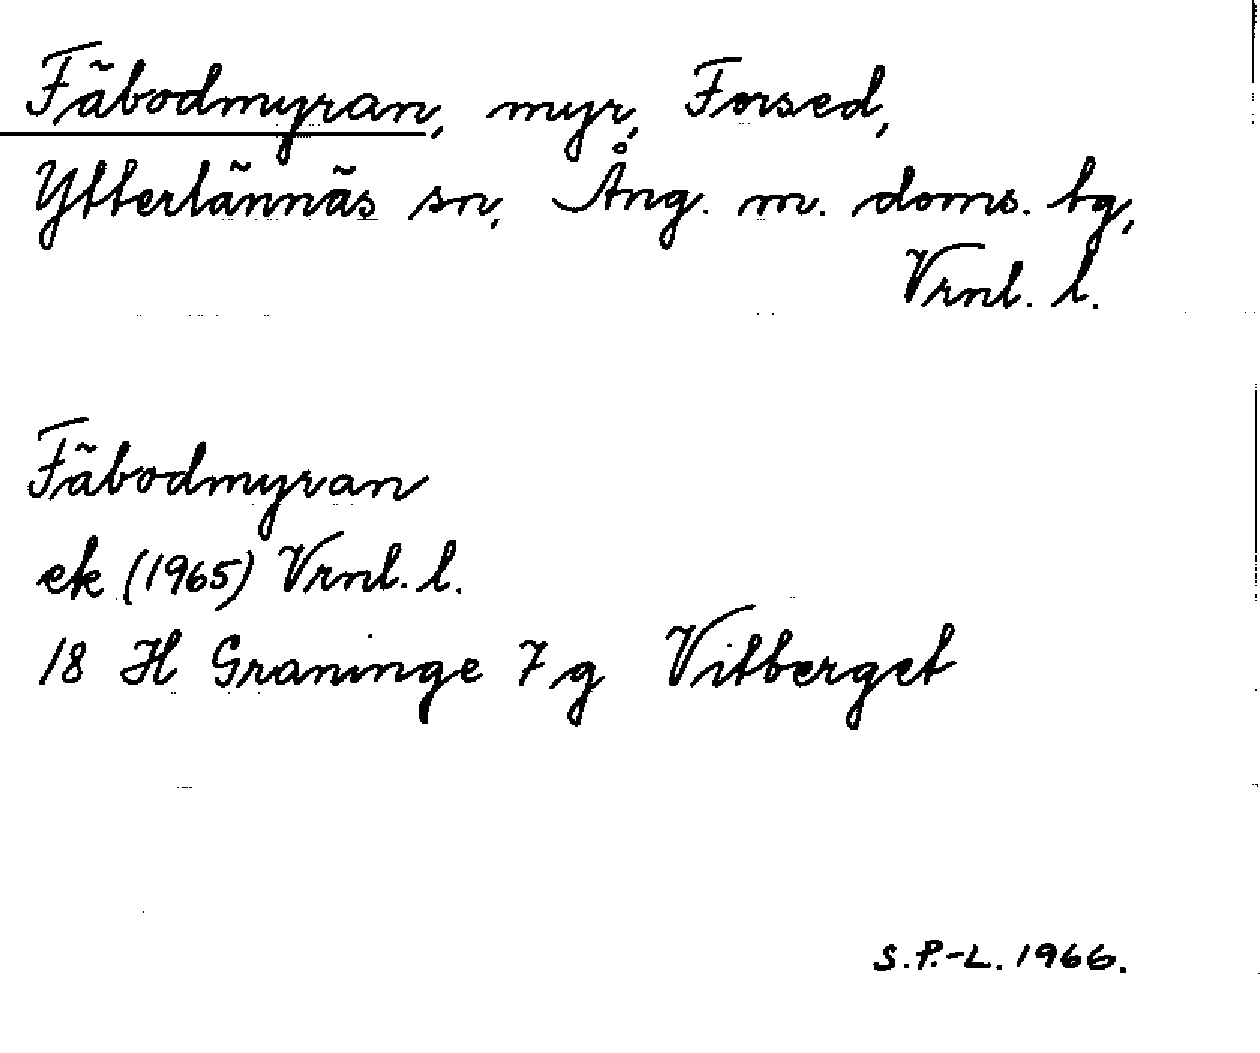 Fäbodmyran, myr, Forsed,
Ytterlännäs sn, Ång. m. doms. tg,
Vrnl. l.
Fäbodmyran
ek (1965) Vrnl. l.
18 H Graninge 7 g Vitberget
S.P.-L. 1966.